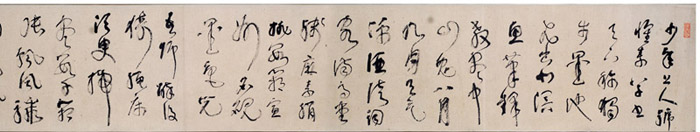 少年上人號
懷素草書
天下稱獨
步墨池
飛出北溟
魚筆鋒
殺盡中
山兔八月
九月天氣
涼酒徒詞
客滿高堂
牋麻素絹
排數箱宣
州石硯
墨色光
吾師醉後
倚繩床
須臾掃
盡數千
張飄風驟